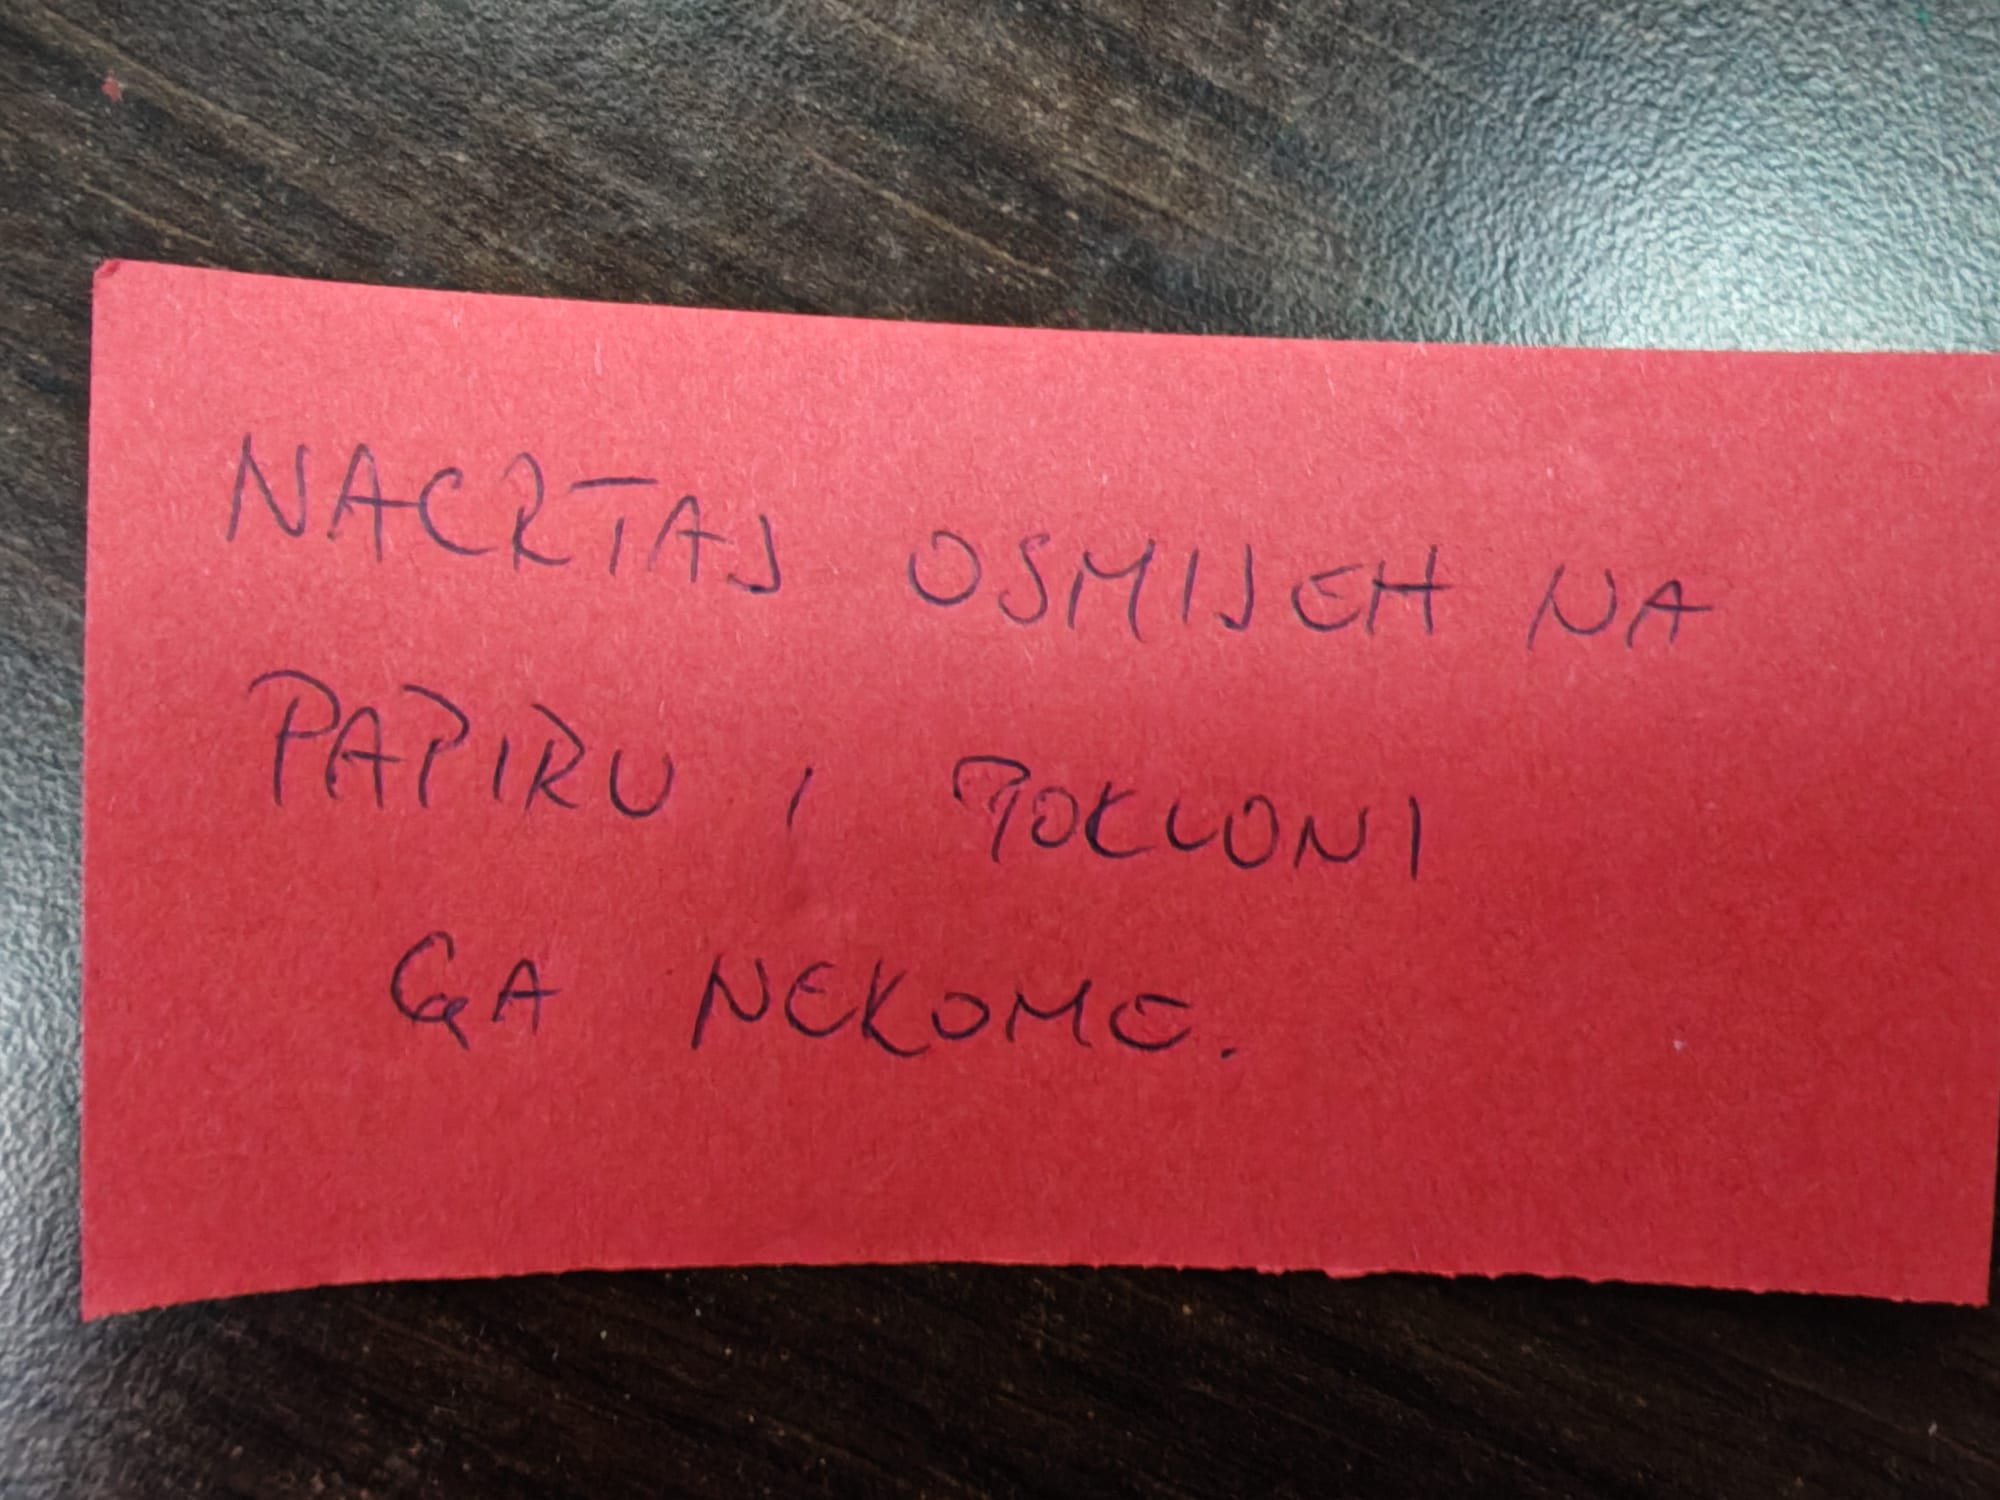 NACRTAJ OSMIJEH NA
PAPIRU I POKLONI
GA NEKOME.